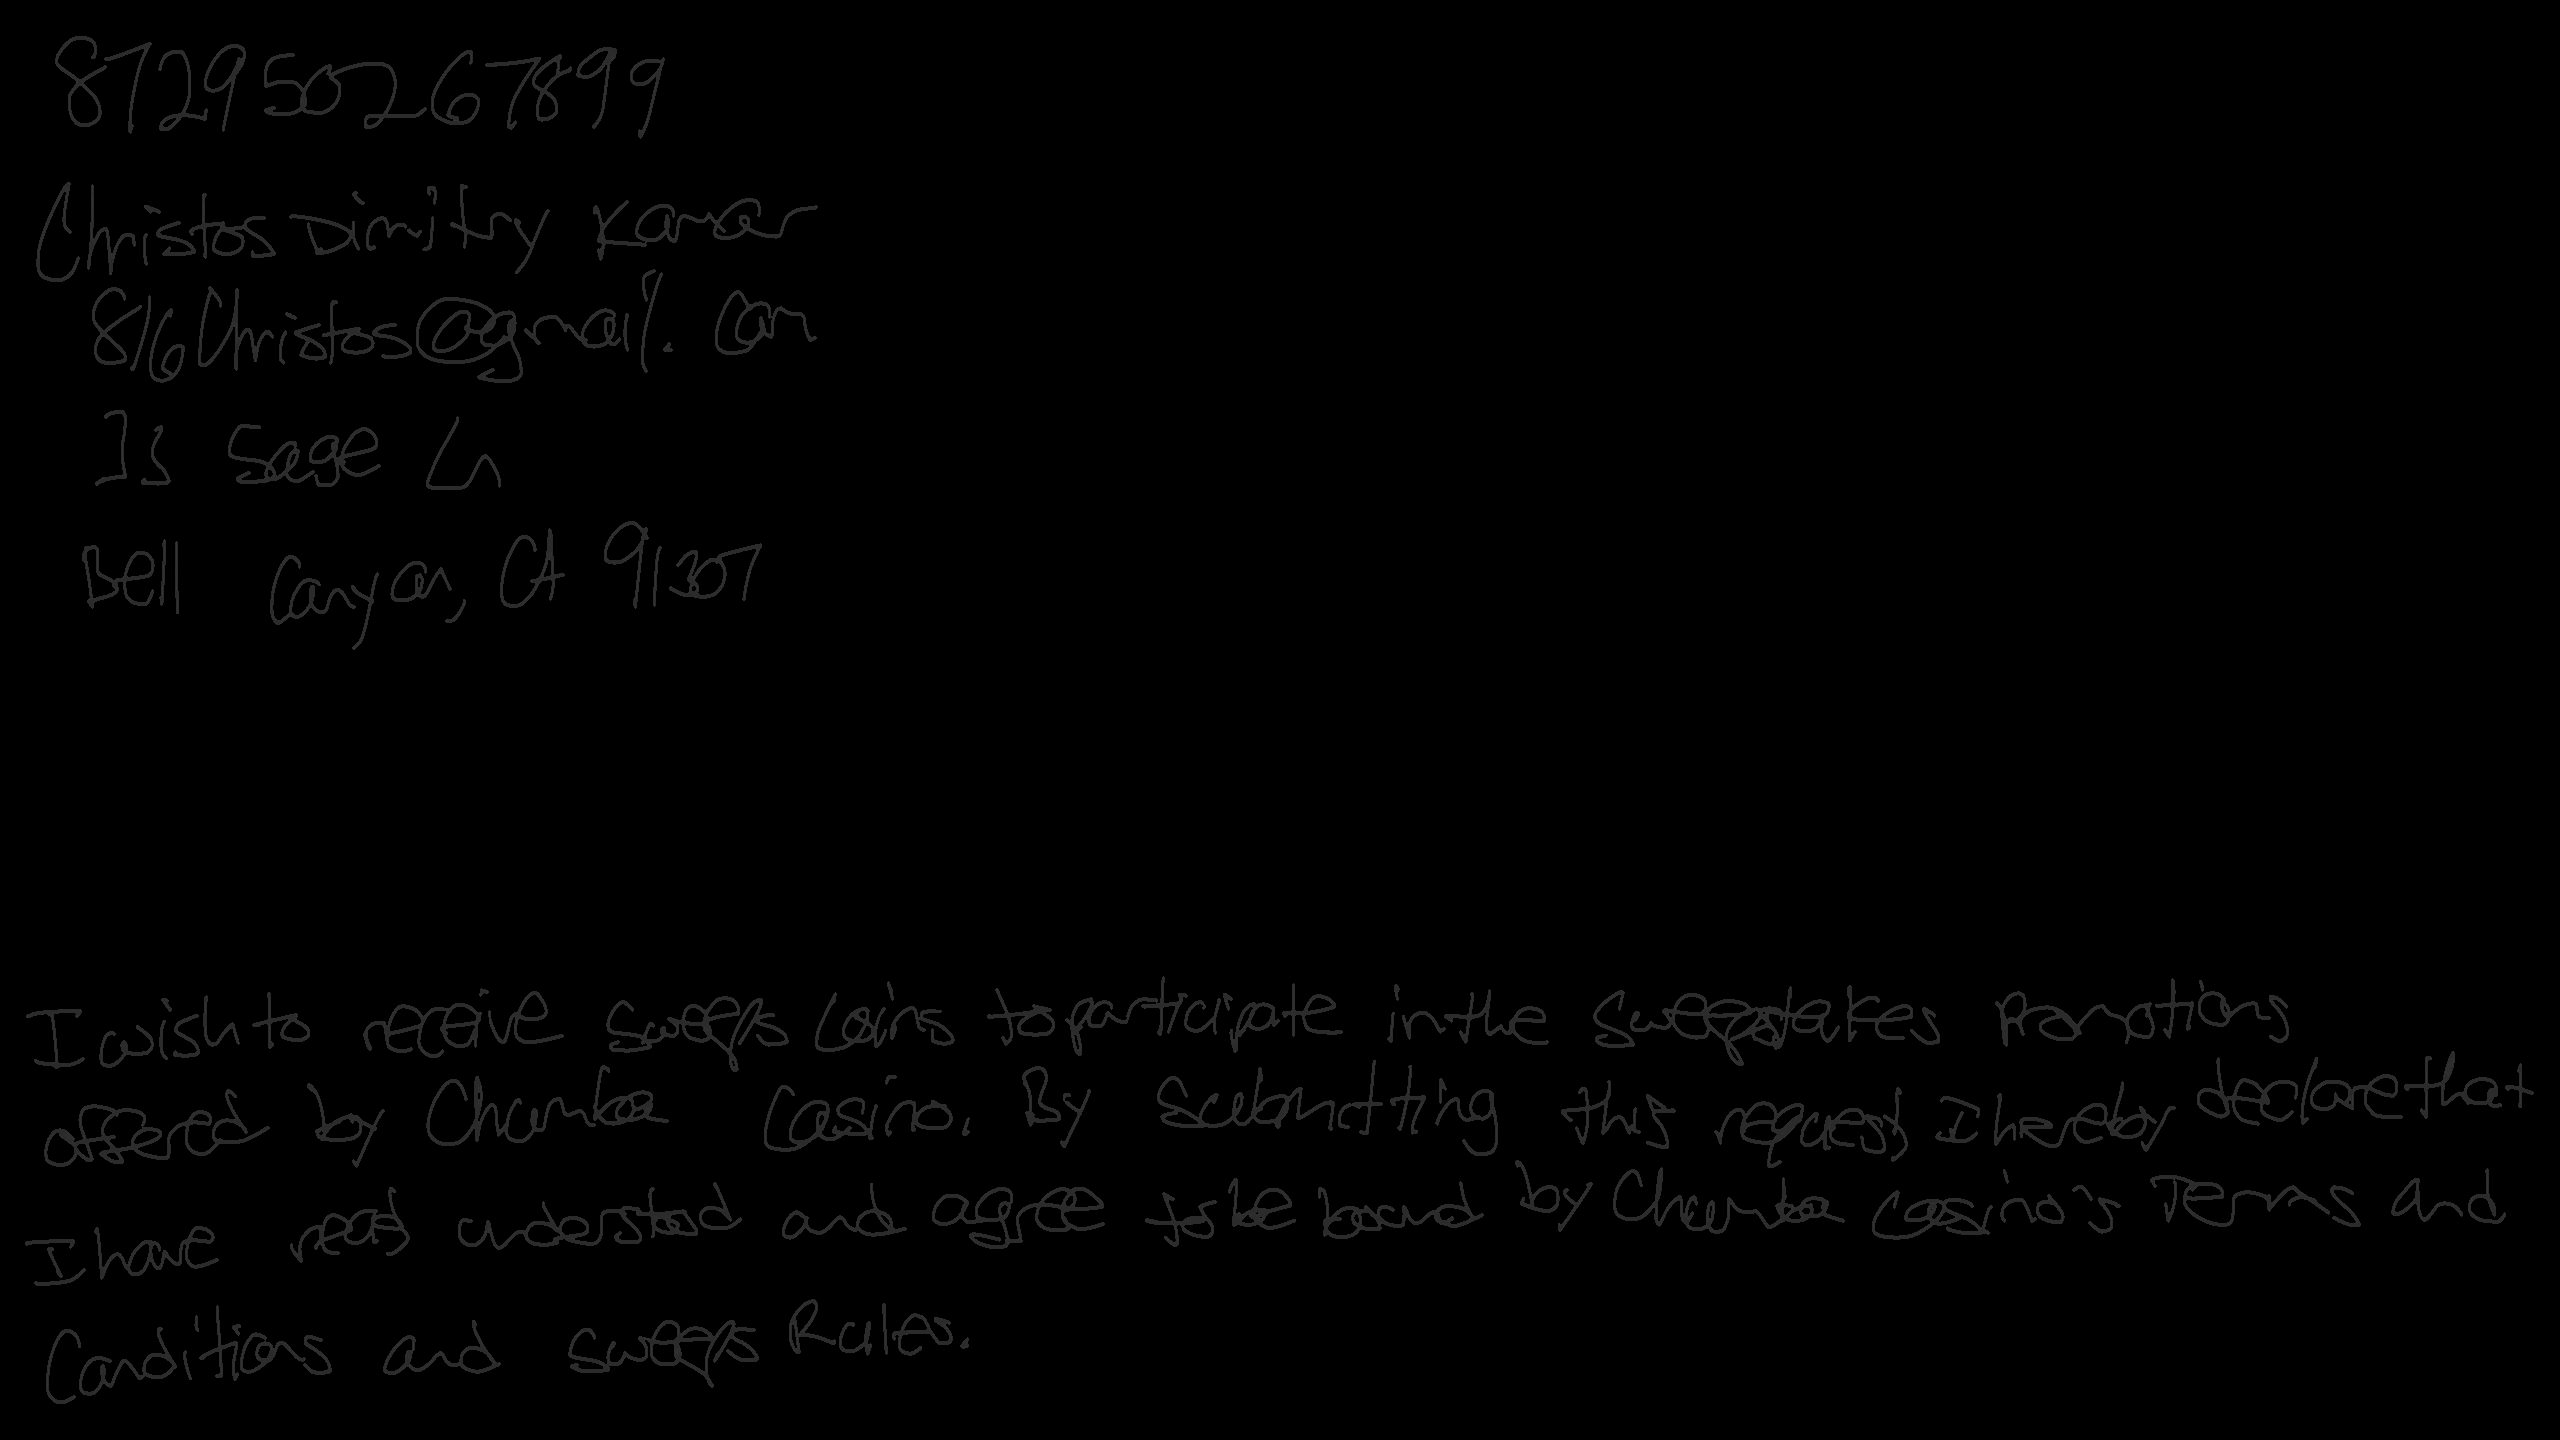 872950267899
Christos Dimitry Kamar
816Christos@gmail.com
Is Sage Ln
Bell Canyon, CA 91307
I wish to receive sweeps Coins to participate in the Sweepstakes Promotions
offered by Chumba Casino. By Submitting this request, I hereby declare that
I have read, understood and agree to be bound by Chumba Casino's Terms and
Conditions and sweeps Rules.